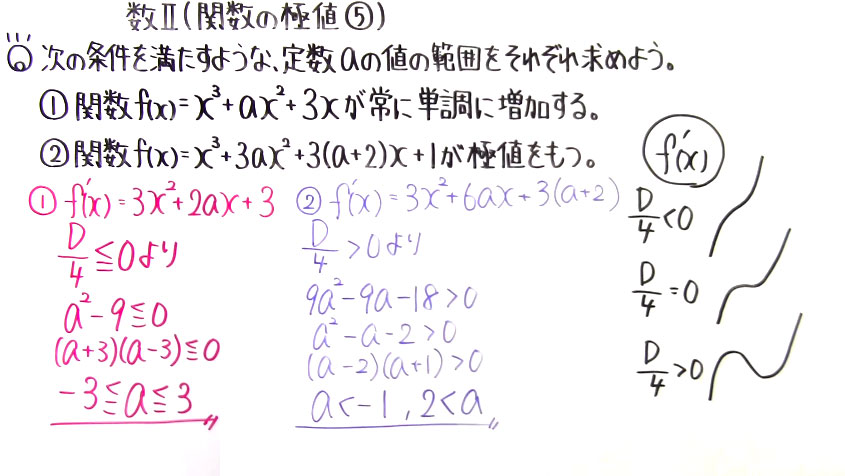 数Ⅱ(関数の極値⑤)
次の条件を満たすような、定数aの値の範囲をそれぞれ求めよう。
①関数f(x)=x³+ax²+3xが常に単調に増加する。
②関数f(x)=x³+3ax²+3(a+2)x+1が極値をもつ。
① f'(x)=3x²+2ax+3
D/4≦0より
a²-9≦0
(a+3)(a-3)≦0
-3≦a≦3
② f'(x)=3x²+6ax+3(a+2)
D/4>0より
9a²-9a-18>0
a²-a-2>0
(a-2)(a+1)>0
a<-1, 2<a
f'(x)
D/4<0
D/4=0
D/4>0